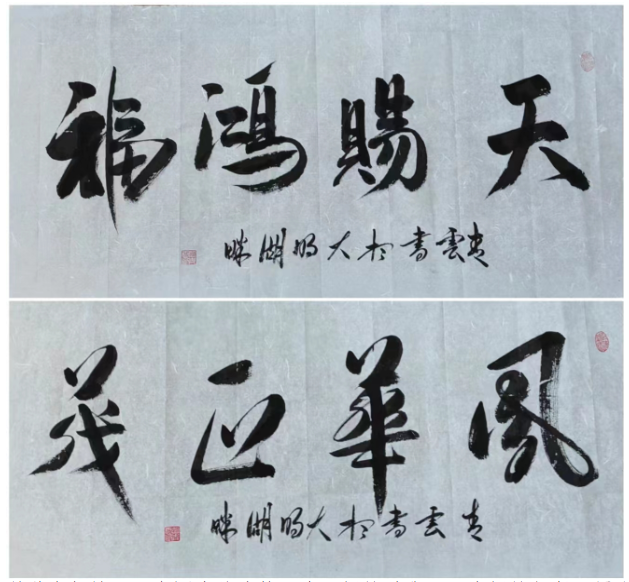 天賜鴻福
青雲書於大明湖畔
風華正茂
青雲書於大明湖畔